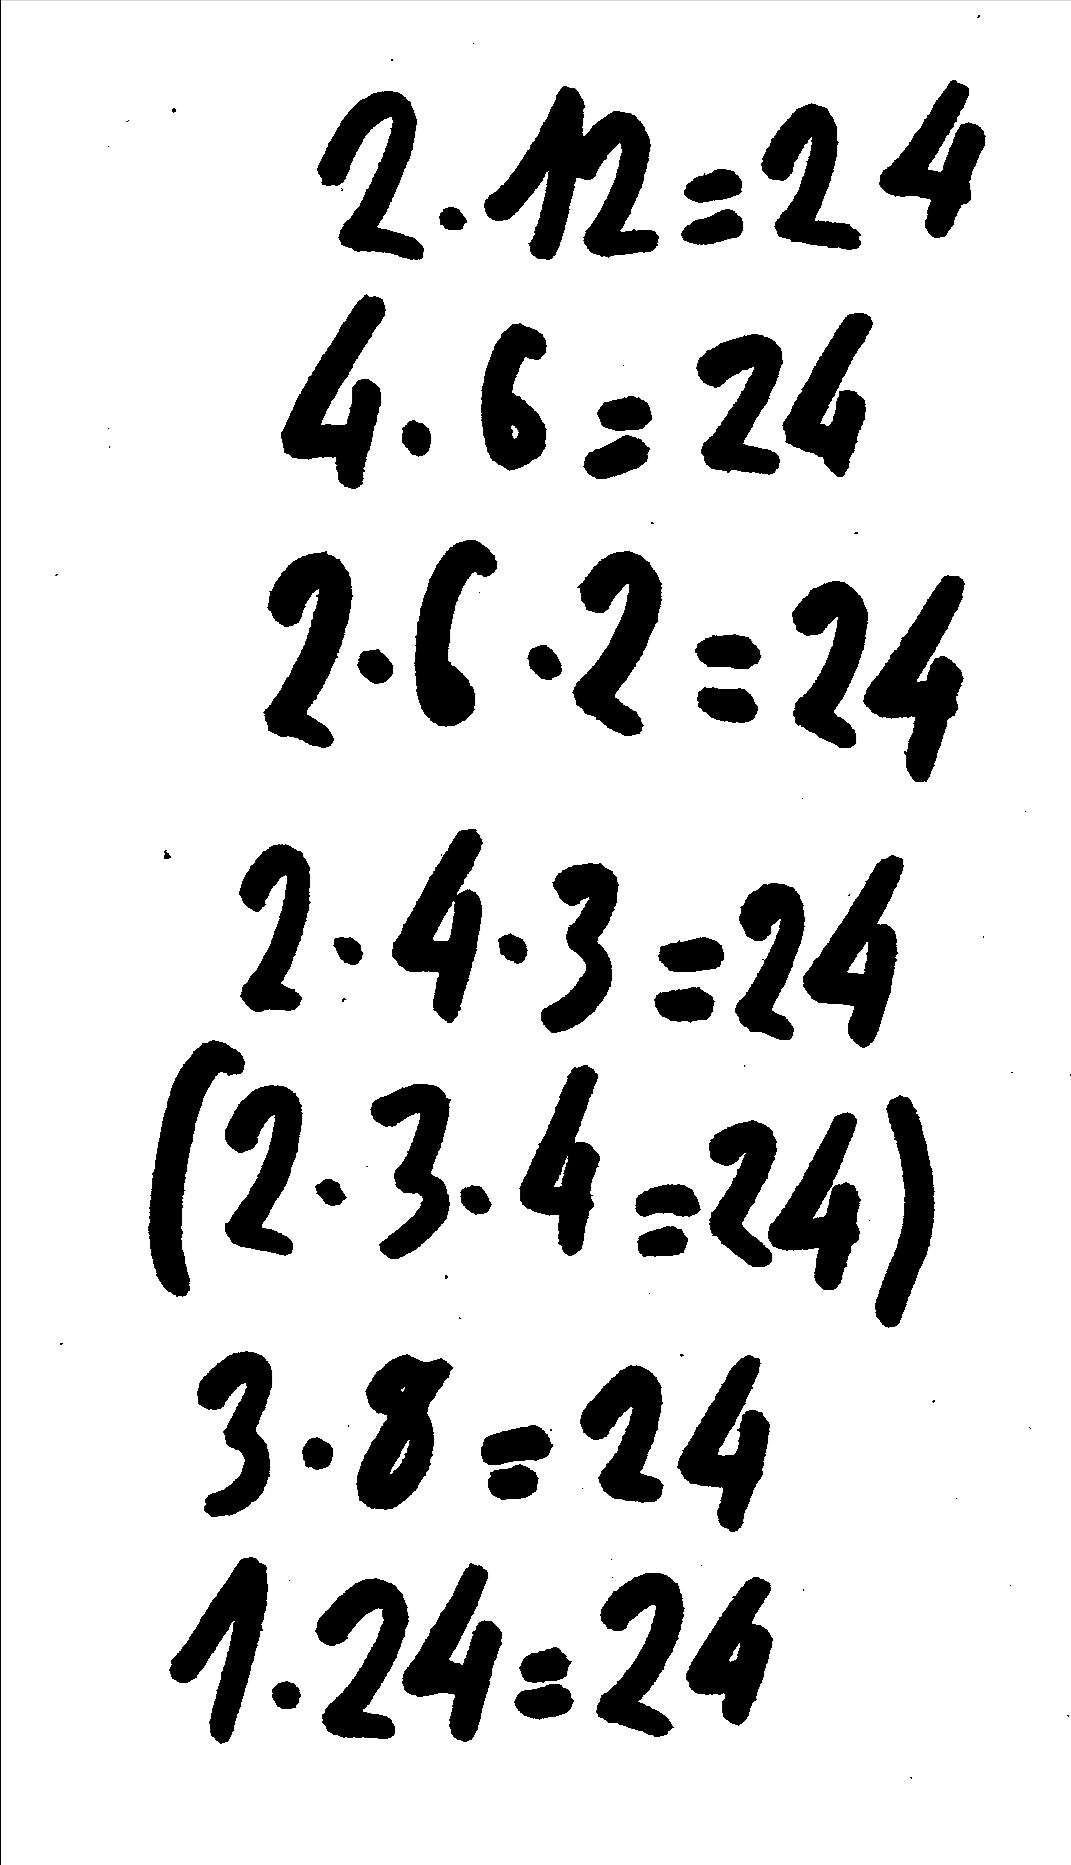 2·12=24
4·6=24
2·6·2=24
2·4·3=24
(2·3·4=24)
3·8=24
1·24=24